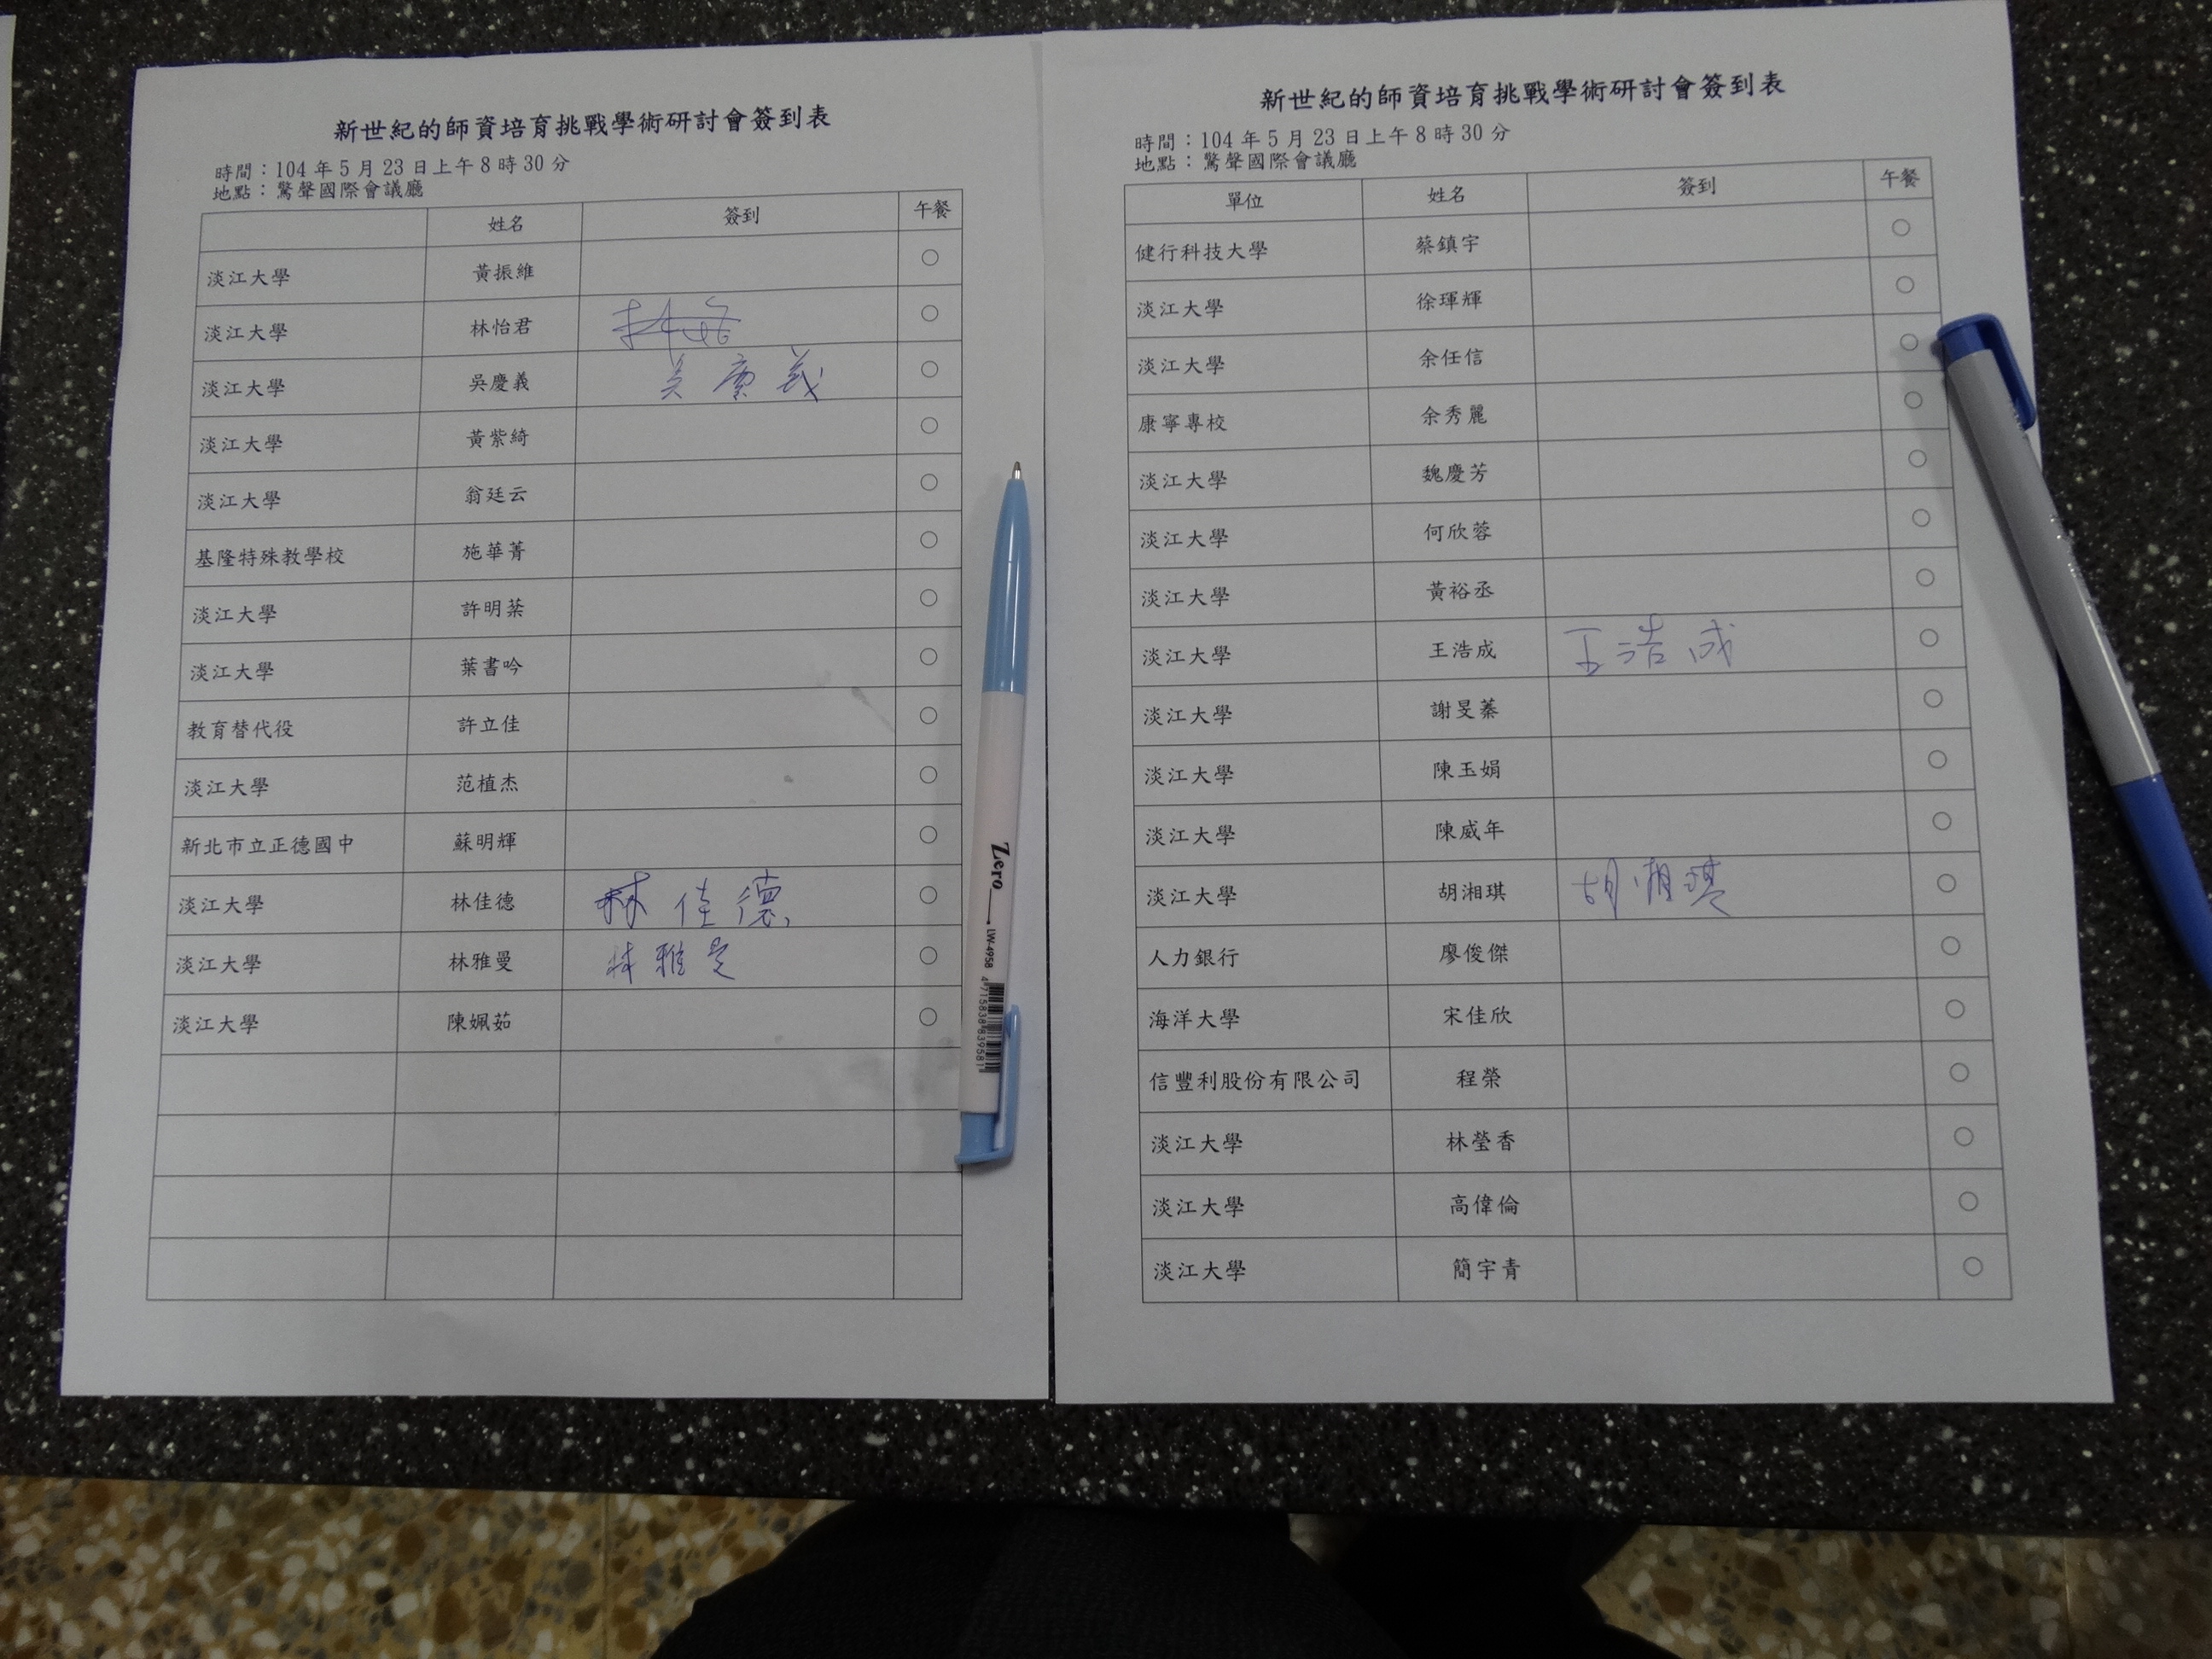 新世紀的師資培育挑戰學術研討會簽到表
時間：104 年 5 月 23 日上午 8 時 30 分
地點：驚聲國際會議廳
姓名 簽到 午餐
淡江大學 黃振維 ○
淡江大學 林怡君 ○
淡江大學 吳慶義 吳慶義 ○
淡江大學 黃紫綺 ○
淡江大學 翁廷云 ○
基隆特殊教學校 施華菁 ○
淡江大學 許明棻 ○
淡江大學 葉書吟 ○
教育替代役 許立佳 ○
淡江大學 范植杰 ○
新北市立正德國中 蘇明輝 ○
淡江大學 林佳德 林佳德 ○
淡江大學 林雅曼 林雅曼 ○
淡江大學 陳姵茹 ○
新世紀的師資培育挑戰學術研討會簽到表
時間：104 年 5 月 23 日上午 8 時 30 分
地點：驚聲國際會議廳
單位 姓名 簽到 午餐
健行科技大學 蔡鎮宇 ○
淡江大學 徐琿輝 ○
淡江大學 余任信 ○
康寧專校 余秀麗 ○
淡江大學 魏慶芳 ○
淡江大學 何欣蓉 ○
淡江大學 黃裕丞 ○
淡江大學 王浩成 王浩成 ○
淡江大學 謝旻蓁 ○
淡江大學 陳玉娟 ○
淡江大學 陳威年 ○
淡江大學 胡湘琪 胡湘琪 ○
人力銀行 廖俊傑 ○
海洋大學 宋佳欣 ○
信豐利股份有限公司 程榮 ○
淡江大學 林瑩香 ○
淡江大學 高偉倫 ○
淡江大學 簡宇青 ○
Zero LW-4958
4715838839581